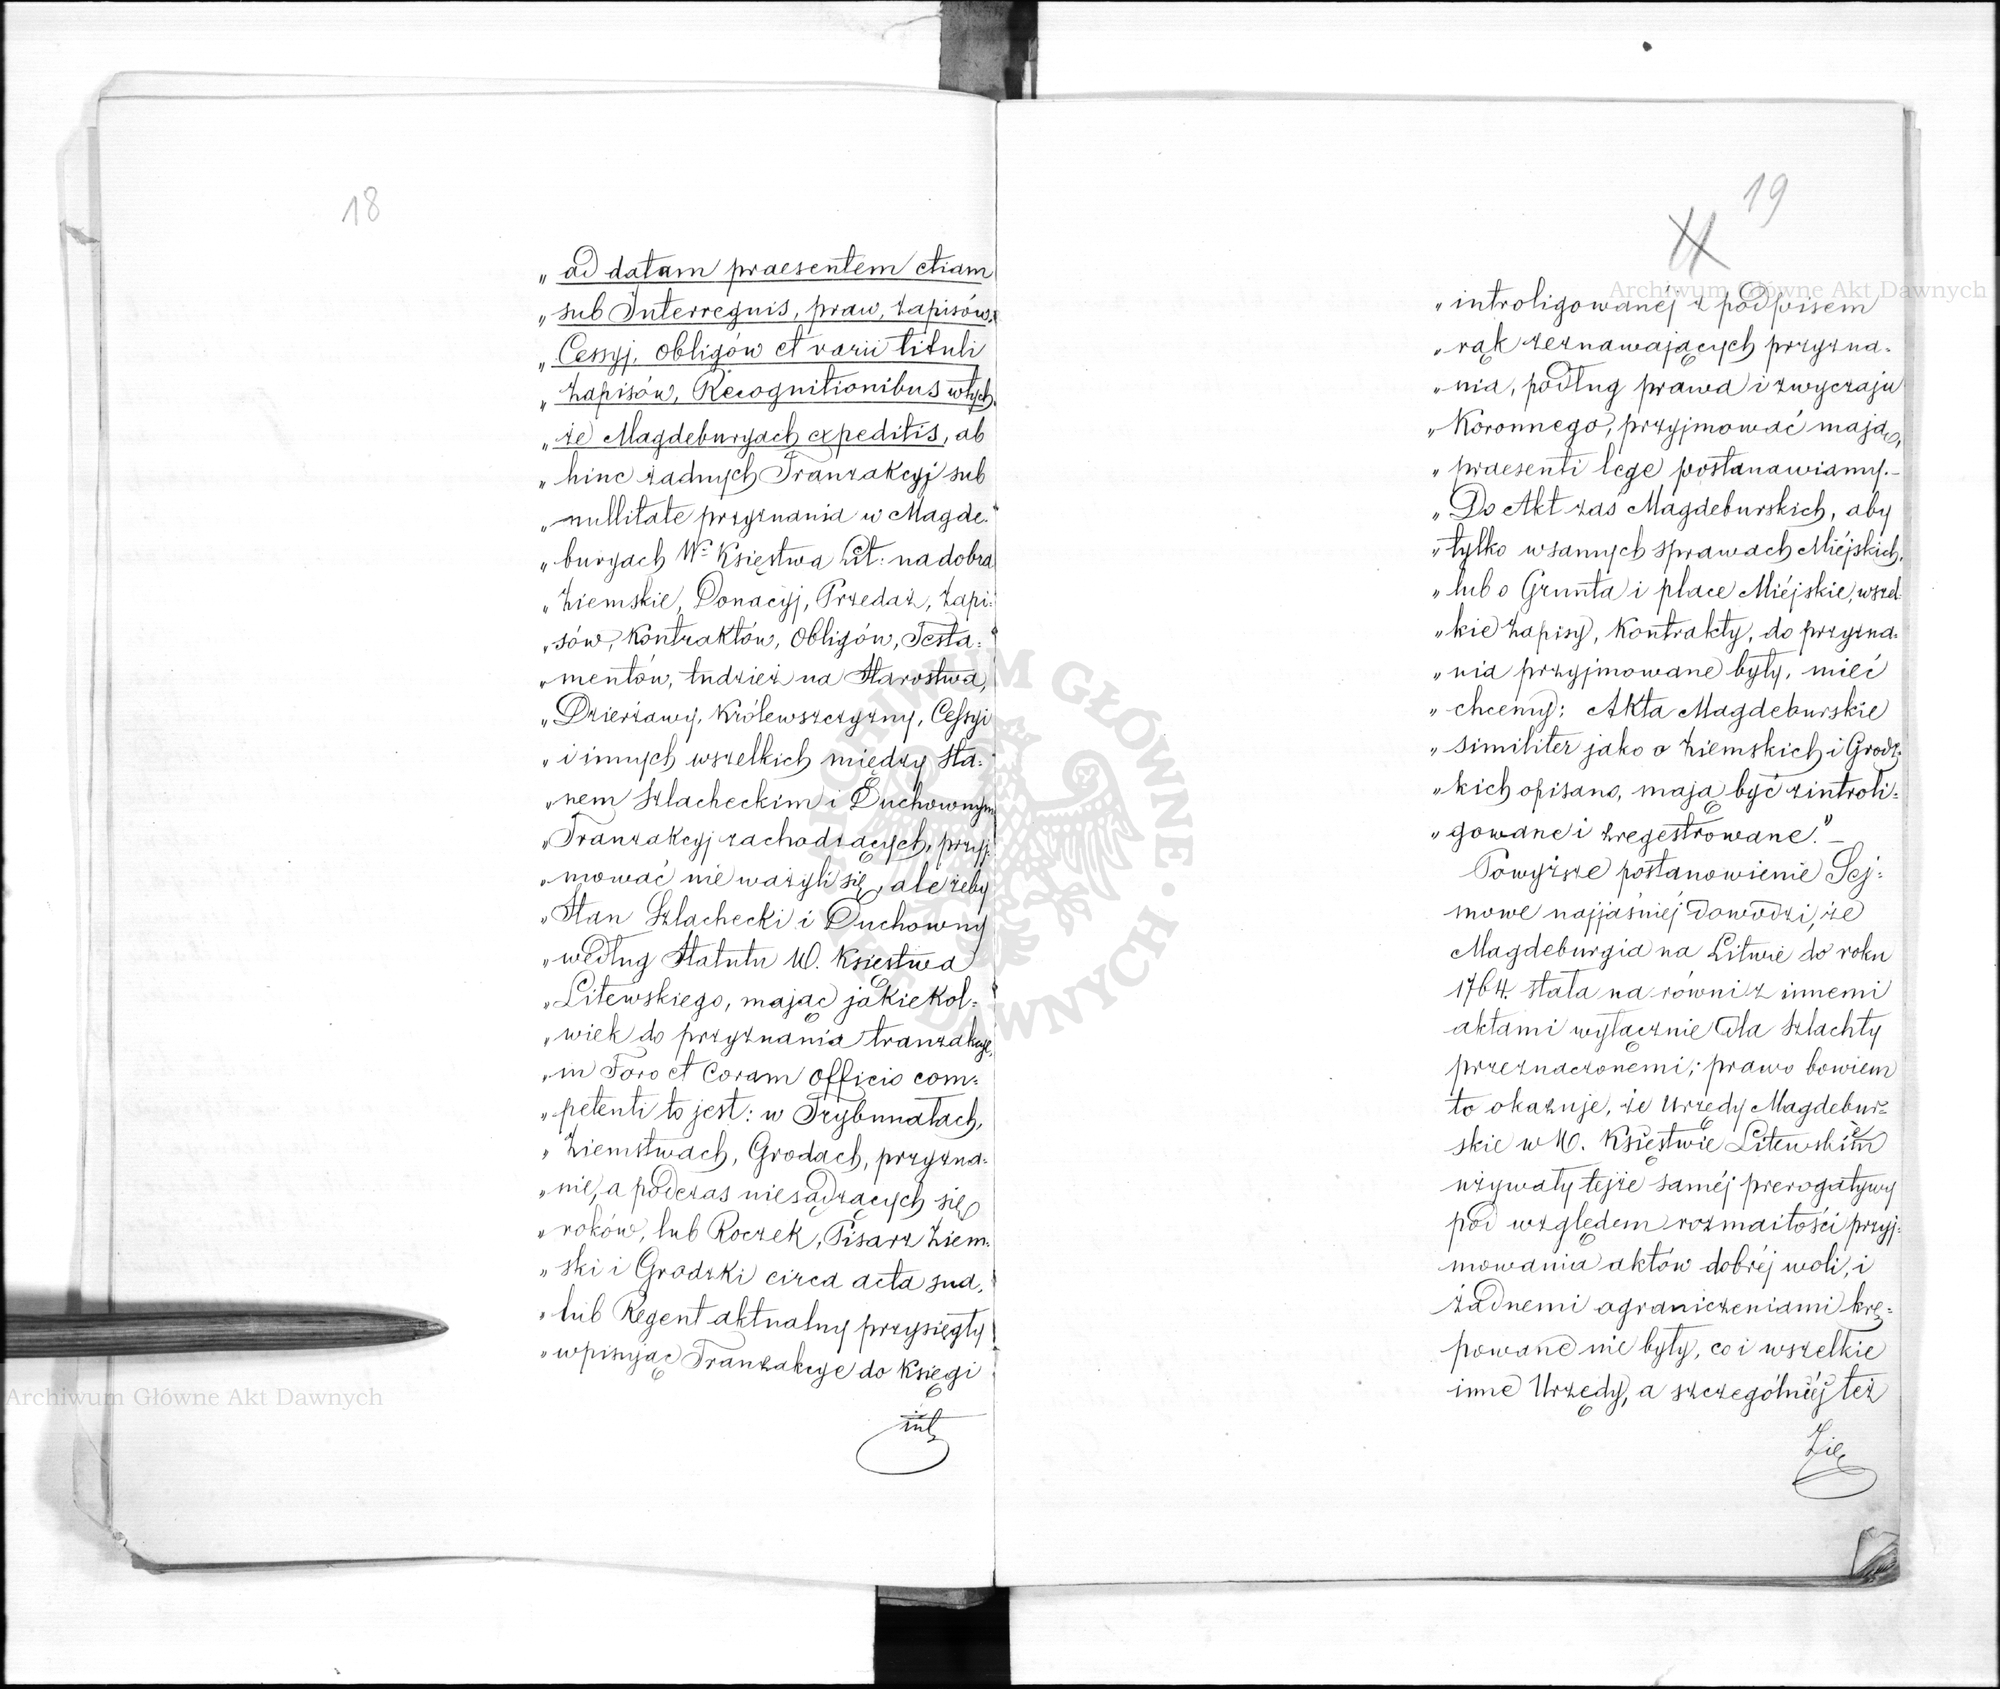 18
„ ad datam praesentem etiam
„ sub Interregnis, praw, zapisów,
„ Cessyj, obligów et varii tituli
„ zapisów, Recognitionibus wtych
„ że Magdeburgach expeditis, ab
„ hinc żadnych Tranzakcyj sub
„ nullitate przyznania w Magde-
„ burgach Wº Księstwa Lit: na dobra
„ Ziemskie, Donacyj, Przedaż, Zapi-
„ sów, Kontraktów, Obligów, Testa-
„ mentów, tudzież na Starostwa,
„ Dzierżawy, Królewszczyzny, Cessyi
„ i innych wszelkich między Sta-
„ nem Szlacheckim i Duchownym
„ Tranzakcyj zachodzących, przyj-
„ mować nie ważyli się, ale żeby
„ Stan Szlachecki i Duchowny
„ według Statutu W. Księstwa
„ Litewskiego, mając jakiekol-
„ wiek do przyznania tranzakcye,
„ in Foro et Coram Officio com-
„ petenti to jest: w Trybunałach,
„ Ziemstwach, Grodach, przyzna-
„ nie, a podczas niesądzących się
„ roków, lub Roczek, Pisarz Ziem-
„ ski i Grodzki circa acta sua,
„ lub Regent aktualny przysięgły
„ wpisując Tranzakcye do Księgi
int
19
Archiwum Główne Akt Dawnych
„ introligowanéj z podpisem
„ rąk zeznawających przyzna-
„ nia, podług prawa i zwyczaju
„ Koronnego, przyjmować mają,
„ praesenti lege postanawiamy.—
„ Do Akt zaś Magdeburskich, aby
„ tylko wsamych sprawach Miéjskich,
„ lub o Grunta i place Miéjskie, wszel-
„ kie zapisy, Kontrakty, do przyzna-
„ nia przyjmowane były, mieć
„ chcemy: Akta Magdeburskie
„ similiter jako o Ziemskich i Grodz-
„ kich opisano, mają być zintroli-
„ gowane i zregestrowane."—
Powyższe postanowienie Sej-
mowe najjaśniéj dowodzi, że
Magdeburgia na Litwie do roku
1764. stała na równi z innemi
aktami wyłącznie dla Szlachty
przeznaczonemi; prawo bowiem
to okazuje, że Urzędy Magdebur-
skie w W. Księstwie Litewskiém
używały tejże saméj prerogatywy
pod względem rozmaitości przyj-
mowania aktów dobréj woli, i
żadnemi ograniczeniami krę-
powane nie były, co i wszelkie
inne Urzędy, a szczególniéj też
Zie
ARCHIWUM GŁÓWNE AKT DAWNYCH
Archiwum Główne Akt Dawnych